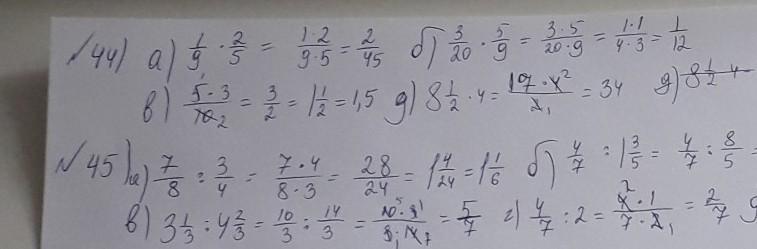 №44) а) 1/9 · 2/5 = 1·2/9·5 = 2/45 б) 3/20 · 5/9 = 3·5/20·9 = 1·1/4·3 = 1/12
в) 5·3/10 2 = 3/2 = 1 1/2 = 1,5 д) 8 1/2 · 4 = 17·4 2/2 1 = 34 д) 8 1/2 · 4
№45) а) 7/8 : 3/4 = 7·4/8·3 = 28/24 = 1 4/24 = 1 1/6 б) 4/7 : 1 3/5 = 4/7 : 8/5 =
в) 3 1/3 : 4 2/3 = 10/3 : 14/3 = 10 5·3 1/3 1·14 7 = 5/7 г) 4/7 : 2 = 4 2·1/7·2 1 = 2/7